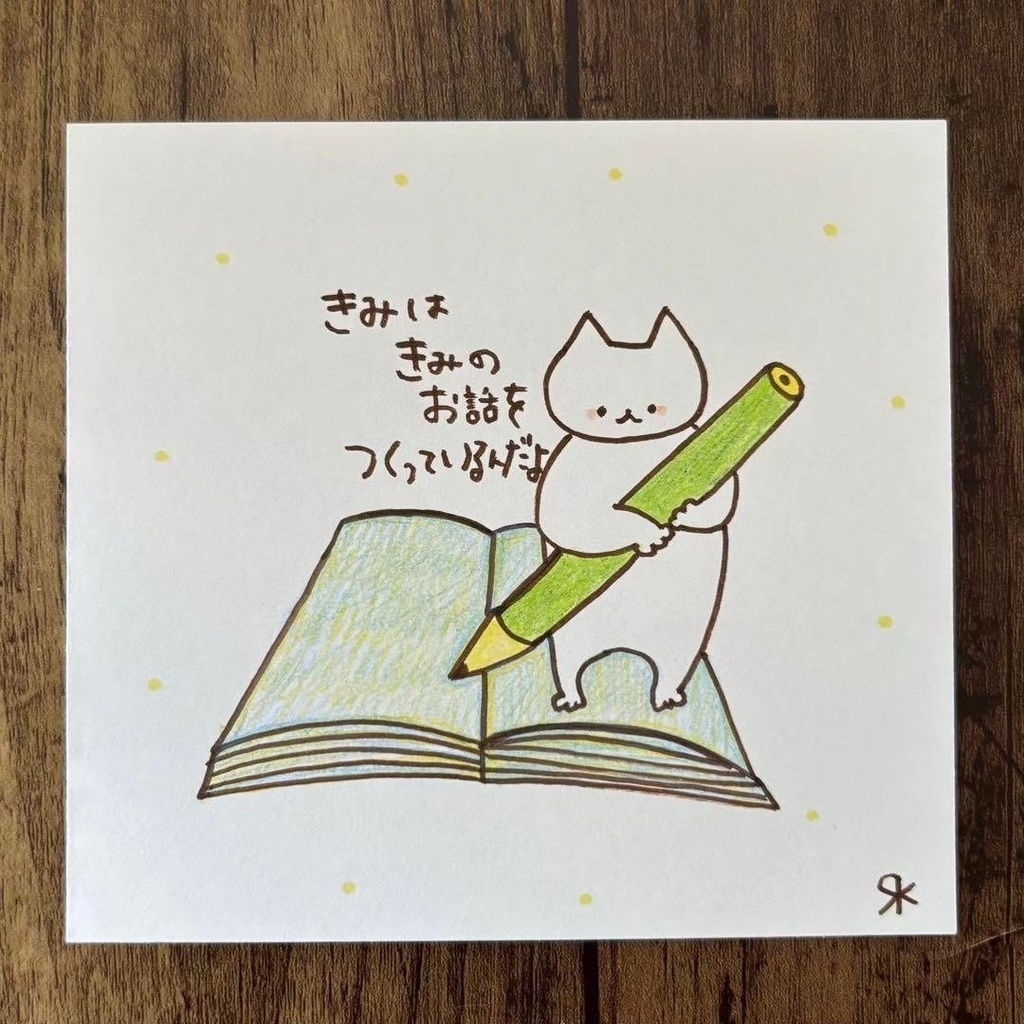 きみは
きみの
お話を
つくっているんだよ